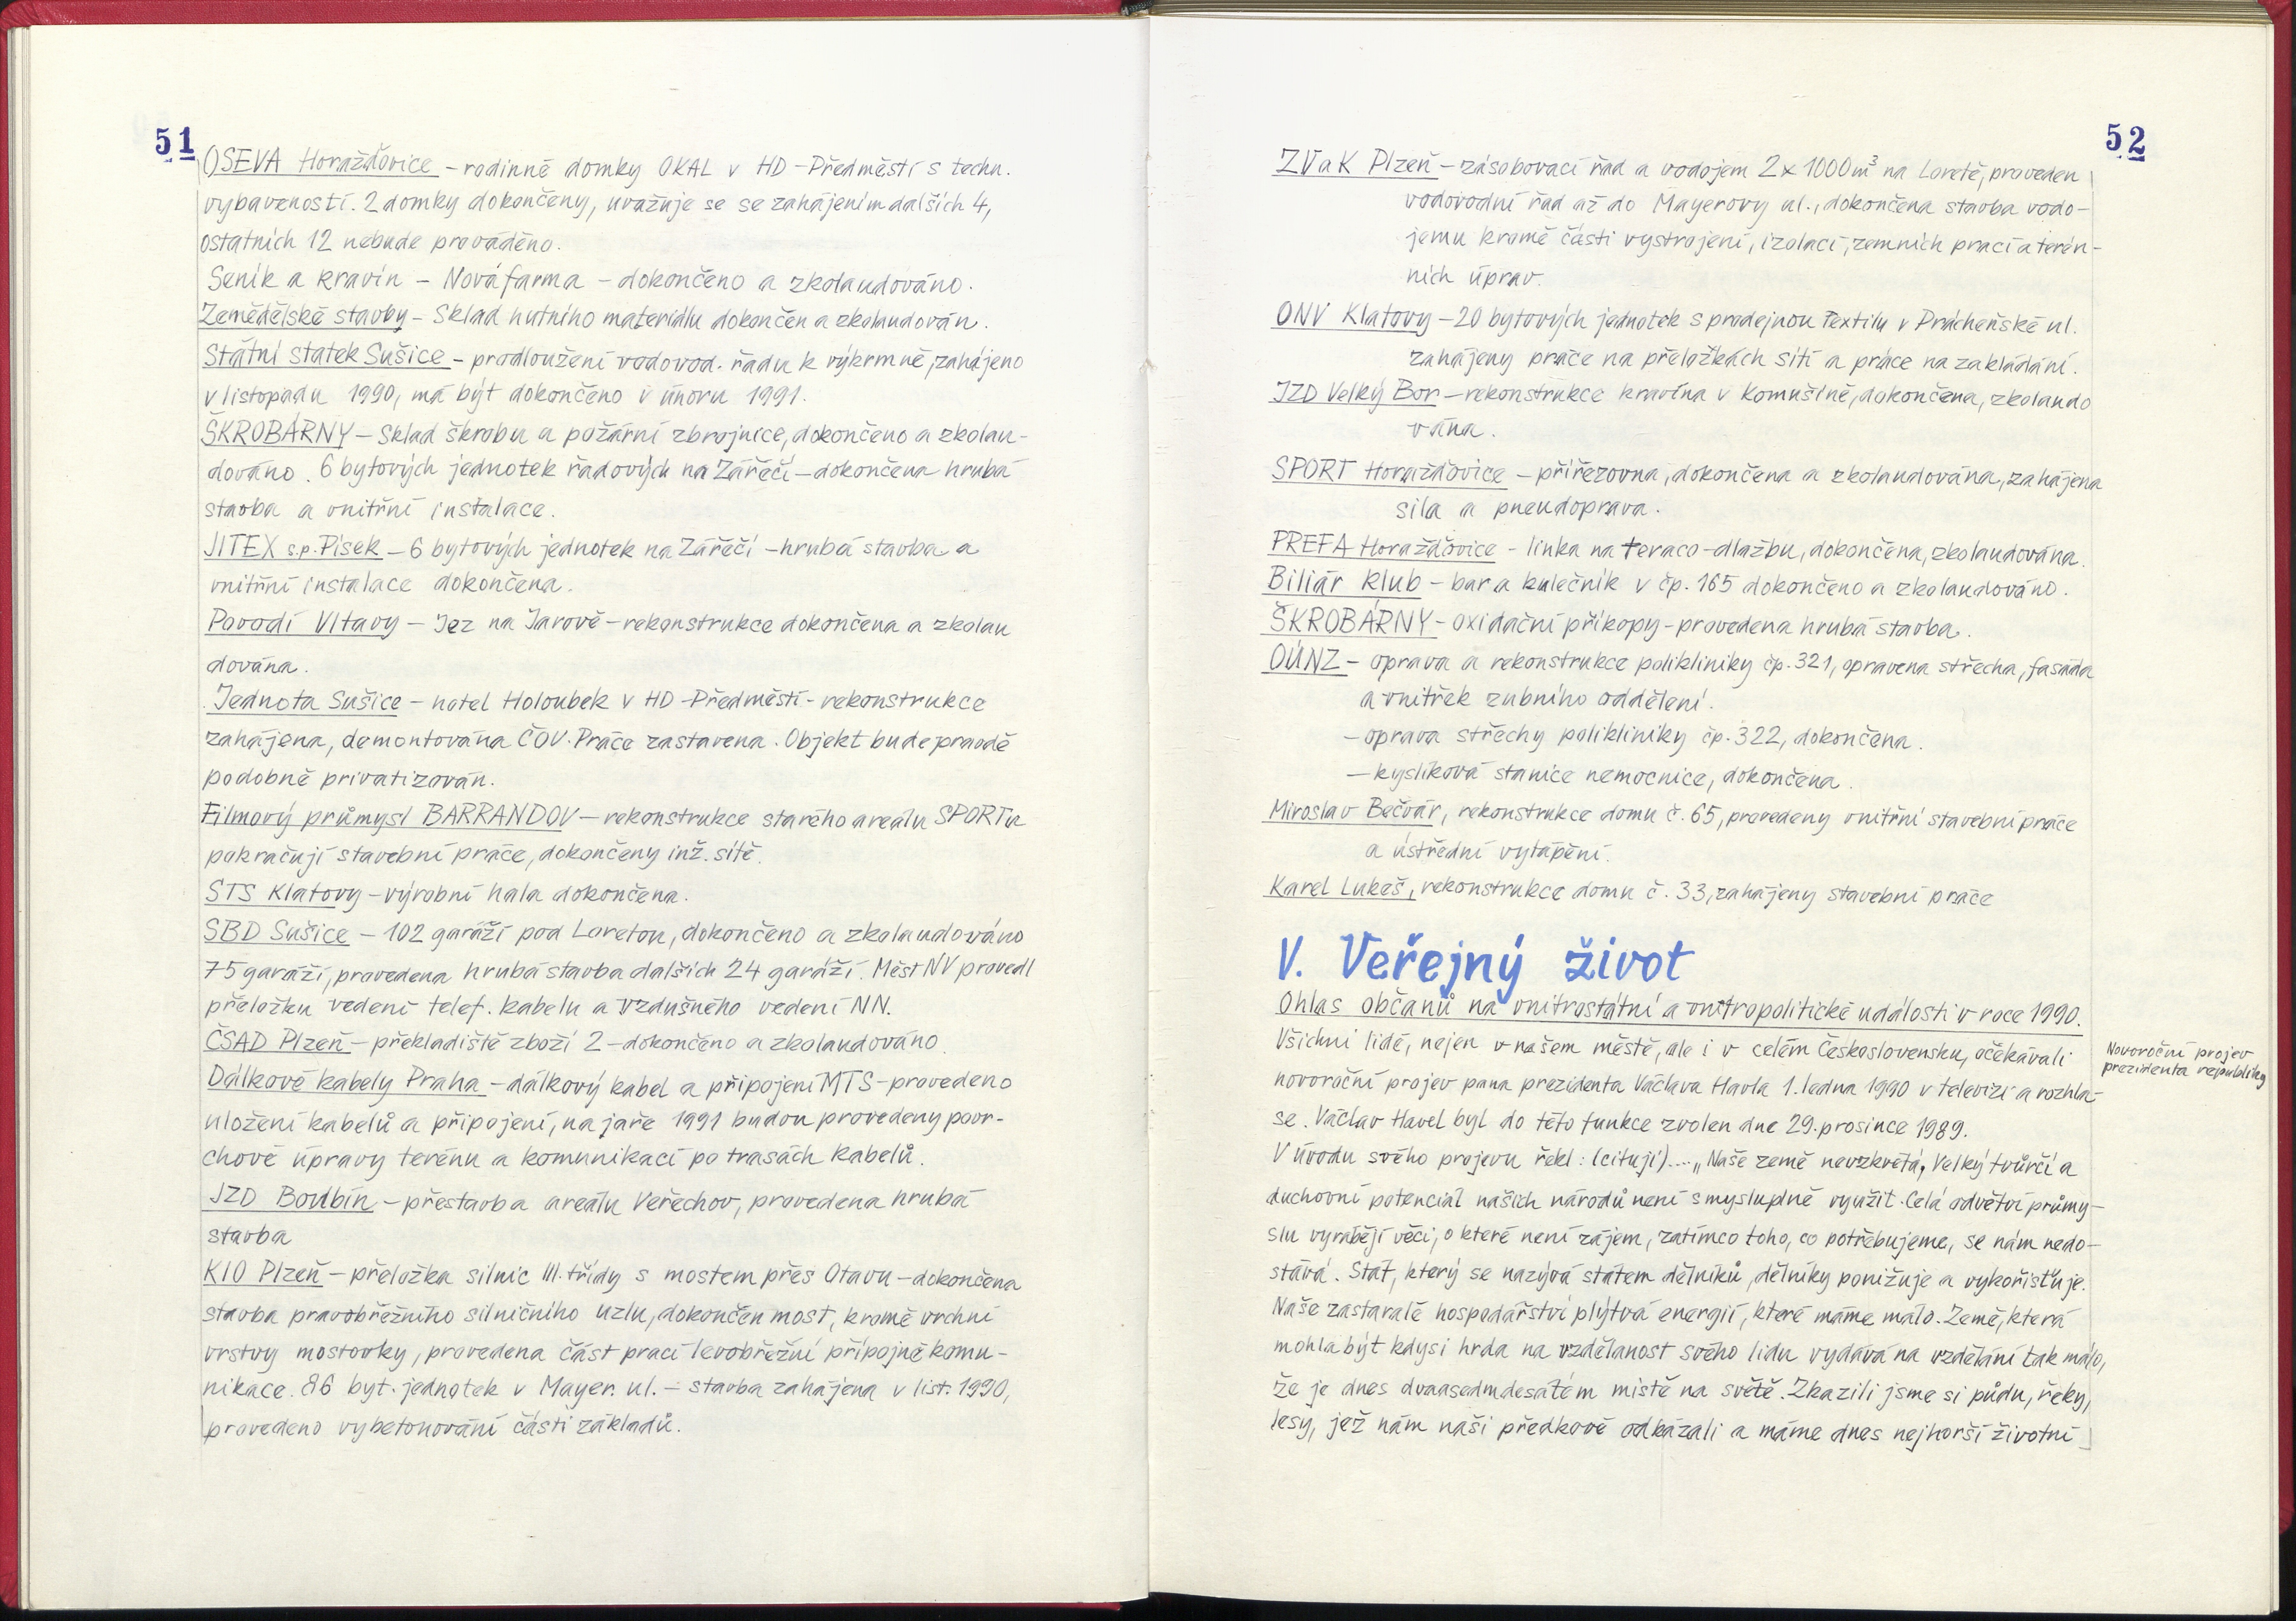 51
OSEVA Horažďovice - rodinné domky OKAL v HD - Předměstí s techn.
vybaveností. 2 domky dokončeny, uvažuje se se zahájením dalších 4,
ostatních 12 nebude prováděno.
Seník a kravín - Nová farma - dokončeno a zkolaudováno.
Zemědělské stavby - Sklad hutního materiálu dokončen a zkolaudován.
Státní statek Sušice - prodloužení vodovod. řadu k výkrmně, zahájeno
v listopadu 1990, má být dokončeno v únoru 1991.
ŠKROBÁRNY - Sklad škrobu a požární zbrojnice, dokončeno a zkolau-
dováno. 6 bytových jednotek řadových na Zářečí - dokončena hrubá
stavba a vnitřní instalace.
JITEX s.p. Písek - 6 bytových jednotek na Zářečí - hrubá stavba a
vnitřní instalace dokončena.
Povodí Vltavy - Jez na Jarově - rekonstrukce dokončena a zkolau
dována.
Jednota Sušice - hotel Holoubek v HD - Předměstí - rekonstrukce
zahájena, demontována ČOV. Práce zastavena. Objekt bude pravdě
podobně privatizován.
Filmový průmysl BARRANDOV - rekonstrukce starého areálu SPORTu
pokračují stavební práce, dokončeny inž. sítě.
STS Klatovy - výrobní hala dokončena.
SBD Sušice - 102 garáží pod Loretou, dokončeno a zkolaudováno
75 garáží, provedena hrubá stavba dalších 24 garáží. Měst NV provedl
přeložku vedení telef. kabelu a vzdušného vedení NN.
ČSAD Plzeň - překladiště zboží 2 - dokončeno a zkolaudováno.
Dálkové kabely Praha - dálkový kabel a připojení MTS - provedeno
uložení kabelů a připojení, na jaře 1991 budou provedeny povr-
chové úpravy terénu a komunikací po trasách kabelů.
JZD Boubín - přestavba areálu Veřechov, provedena hrubá
stavba
KIO Plzeň - přeložka silnic III. třídy s mostem přes Otavu - dokončena
stavba pravobřežního silničního uzlu, dokončen most, kromě vrchní
vrstvy mostovky, provedena část prací levobřežní přípojné komu-
nikace. 86 byt. jednotek v Mayer. ul. - stavba zahájena v list. 1990,
provedeno vybetonování části základů.
52
ZVaK Plzeň - zásobovací řad a vodojem 2 x 1000 m³ na Loretě, proveden
vodovodní řad až do Mayerovy ul., dokončena stavba vodo-
jemu kromě části vystrojení, izolací, zemních prací a terén-
ních úprav.
ONV Klatovy - 20 bytových jednotek s prodejnou Textilu v Prácheňské ul.
zahájeny práce na přeložkách sítí a práce na zakládání.
JZD Velký Bor - rekonstrukce kravína v Komušíně, dokončena, zkolaudo
vána.
SPORT Horažďovice - přířezovna, dokončena a zkolaudována, zahájena
sila a pneudoprava.
PREFA Horažďovice - linka na teraco-dlažbu, dokončena, zkolaudována.
Biliár klub - bar a kulečník v čp. 165 dokončeno a zkolaudováno.
ŠKROBÁRNY - oxidační příkopy - provedena hrubá stavba.
OÚNZ - oprava a rekonstrukce polikliniky čp. 321, opravena střecha, fasáda
a vnitřek zubního oddělení.
- oprava střechy polikliniky čp. 322, dokončena.
- kyslíková stanice nemocnice, dokončena.
Miroslav Bečvář, rekonstrukce domu č. 65, provedeny vnitřní stavební práce
a ústřední vytápění.
Karel Lukeš, rekonstrukce domu č. 33, zahájeny stavební práce
V. Veřejný život
Ohlas občanů na vnitrostátní a vnitropolitické události v roce 1990.
Všichni lidé, nejen v našem městě, ale i v celém Československu, očekávali
novoroční projev pana prezidenta Václava Havla 1. ledna 1990 v televizi a rozhla-
se. Václav Havel byl do této funkce zvolen dne 29. prosince 1989.
V úvodu svého projevu řekl: (cituji).... „Naše země nevzkvétá, Velký tvůrčí a
duchovní potenciál našich národů není smysluplně využit. Celá odvětví průmy-
slu vyrábějí věci, o které není zájem, zatímco toho, co potřebujeme, se nám nedo-
stává. Stát, který se nazývá státem dělníků, dělníky ponižuje a vykořisťuje.
Naše zastaralé hospodářství plýtvá energií, které máme málo. Země, která
mohla být kdysi hrdá na vzdělanost svého lidu vydává na vzdělání tak málo,
že je dnes dvaasedmdesátém místě na světě. Zkazili jsme si půdu, řeky,
lesy, jež nám naši předkové odkázali a máme dnes nejhorší životní
Novoroční projev
prezidenta republiky